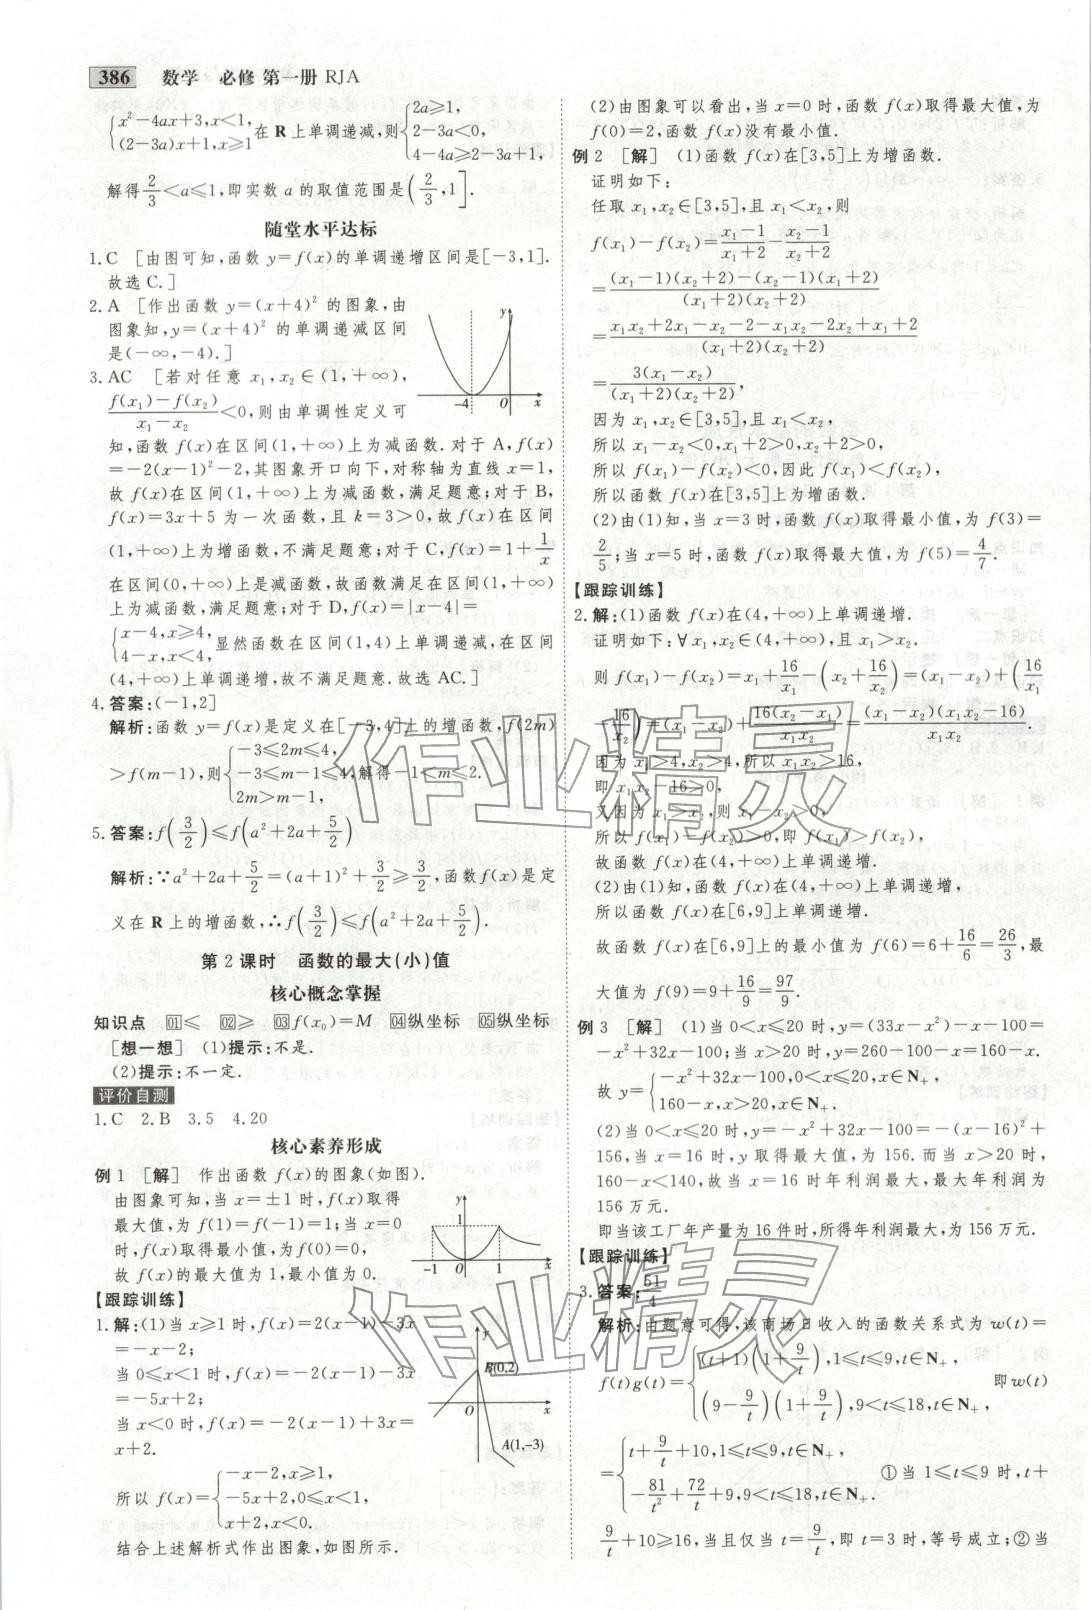 386 数学 必修 第一册 RJA
{x²-4ax+3,x<1, (2-3a)x+1,x≥1 在 R 上单调递减,则{2a≥1, 2-3a<0, 4-4a≥2-3a+1,
解得2/3<a≤1,即实数 a 的取值范围是(2/3,1].
随堂水平达标
1.C [由图可知,函数 y=f(x)的单调递增区间是[-3,1].
故选 C.]
2.A [作出函数 y=(x+4)² 的图象,由
图象知,y=(x+4)² 的单调递减区间
是(-∞,-4).]
y
-4 O x
3.AC [若对任意 x₁,x₂∈(1,+∞),
(f(x₁)-f(x₂))/(x₁-x₂)<0,则由单调性定义可
知,函数 f(x)在区间(1,+∞)上为减函数.对于 A,f(x)
=-2(x-1)²-2,其图象开口向下,对称轴为直线 x=1,
故 f(x)在区间(1,+∞)上为减函数,满足题意;对于 B,
f(x)=3x+5 为一次函数,且 k=3>0,故 f(x)在区间
(1,+∞)上为增函数,不满足题意;对于 C,f(x)=1+1/x
在区间(0,+∞)上是减函数,故函数满足在区间(1,+∞)
上为减函数,满足题意;对于 D,f(x)=|x-4|=
{x-4,x≥4, 4-x,x<4, 显然函数在区间(1,4)上单调递减,在区间
(4,+∞)上单调递增,故不满足题意.故选 AC.]
4.答案:(-1,2]
解析:函数 y=f(x)是定义在[-3,4]上的增函数,f(2m)
>f(m-1),则{-3≤2m≤4, -3≤m-1≤4, 2m>m-1, 解得-1<m≤2.
5.答案:f(3/2)≤f(a²+2a+5/2)
解析:∵a²+2a+5/2=(a+1)²+3/2≥3/2,函数f(x)是定
义在 R 上的增函数,∴f(3/2)≤f(a²+2a+5/2).
第 2 课时 函数的最大(小)值
核心概念掌握
知识点 01≤ 02≥ 03f(x₀)=M 04纵坐标 05纵坐标
[想一想] (1)提示:不是.
(2)提示:不一定.
评价自测
1.C 2.B 3.5 4.20
核心素养形成
例 1 [解] 作出函数 f(x)的图象(如图).
由图象可知,当 x=±1 时,f(x)取得
最大值,为 f(1)=f(-1)=1;当 x=0
时,f(x)取得最小值,为 f(0)=0.
故 f(x)的最大值为 1,最小值为 0.
y
1
-1 O 1 x
【跟踪训练】
1.解:(1)当 x≥1 时,f(x)=2(x-1)-3x
=-x-2;
当 0≤x<1 时,f(x)=-2(x-1)-3x
=-5x+2;
当 x<0 时,f(x)=-2(x-1)+3x=
x+2.
所以 f(x)={-x-2,x≥1, -5x+2,0≤x<1, x+2,x<0.
结合上述解析式作出图象,如图所示.
y
B(0,2)
O x
A(1,-3)
(2)由图象可以看出,当 x=0 时,函数 f(x)取得最大值,为
f(0)=2,函数 f(x)没有最小值.
例 2 [解] (1)函数 f(x)在[3,5]上为增函数.
证明如下:
任取 x₁,x₂∈[3,5],且 x₁<x₂,则
f(x₁)-f(x₂)=(x₁-1)/(x₁+2)-(x₂-1)/(x₂+2)
=((x₁-1)(x₂+2)-(x₂-1)(x₁+2))/((x₁+2)(x₂+2))
=(x₁x₂+2x₁-x₂-2-x₁x₂-2x₂+x₁+2)/((x₁+2)(x₂+2))
=3(x₁-x₂)/((x₁+2)(x₂+2)),
因为 x₁,x₂∈[3,5],且 x₁<x₂,
所以 x₁-x₂<0,x₁+2>0,x₂+2>0,
所以 f(x₁)-f(x₂)<0,因此 f(x₁)<f(x₂),
所以函数 f(x)在[3,5]上为增函数.
(2)由(1)知,当 x=3 时,函数 f(x)取得最小值,为 f(3)=
2/5;当 x=5 时,函数 f(x)取得最大值,为 f(5)=4/7.
【跟踪训练】
2.解:(1)函数 f(x)在(4,+∞)上单调递增.
证明如下:∀x₁,x₂∈(4,+∞),且 x₁>x₂.
则 f(x₁)-f(x₂)=x₁+16/x₁-(x₂+16/x₂)=(x₁-x₂)+(16/x₁
-16/x₂)=(x₁-x₂)+16(x₂-x₁)/(x₁x₂)=(x₁-x₂)(x₁x₂-16)/(x₁x₂).
因为 x₁>4,x₂>4,所以 x₁x₂>16,
即 x₁x₂-16>0,
又因为 x₁>x₂,则 x₁-x₂>0,
所以 f(x₁)-f(x₂)>0,即 f(x₁)>f(x₂),
故函数 f(x)在(4,+∞)上单调递增.
(2)由(1)知函数 f(x)在(4,+∞)上单调递增,
所以函数 f(x)在[6,9]上单调递增.
故函数 f(x)在[6,9]上的最小值为 f(6)=6+16/6=26/3,最
大值为 f(9)=9+16/9=97/9.
例 3 [解] (1)当 0<x≤20 时,y=(33x-x²)-x-100=
-x²+32x-100;当 x>20 时,y=260-100-x=160-x.
故 y={-x²+32x-100,0<x≤20, 160-x,x>20, x∈N₊.
(2)当 0<x≤20 时,y=-x²+32x-100=-(x-16)²+
156,当 x=16 时,y 取得最大值,为 156.而当 x>20 时,
160-x<140,故当 x=16 时年利润最大,最大年利润为
156 万元.
即当该工厂年产量为 16 件时,所得年利润最大,为 156 万元.
【跟踪训练】
3.答案:51/4
解析:由题意可得,该商场日收入的函数关系式为 w(t)=
f(t)g(t)={(t+1)(1+9/t),1≤t≤9,t∈N₊, (9-9/t)(1+9/t),9<t≤18,t∈N₊, 即 w(t)
={t+9/t+10,1≤t≤9,t∈N₊, -81/t²+72/t+9,9<t≤18,t∈N₊. ①当 1≤t≤9 时,t+
9/t+10≥16,当且仅当 t=9/t,即 t=3 时,等号成立;②当
作业精灵
作业精灵